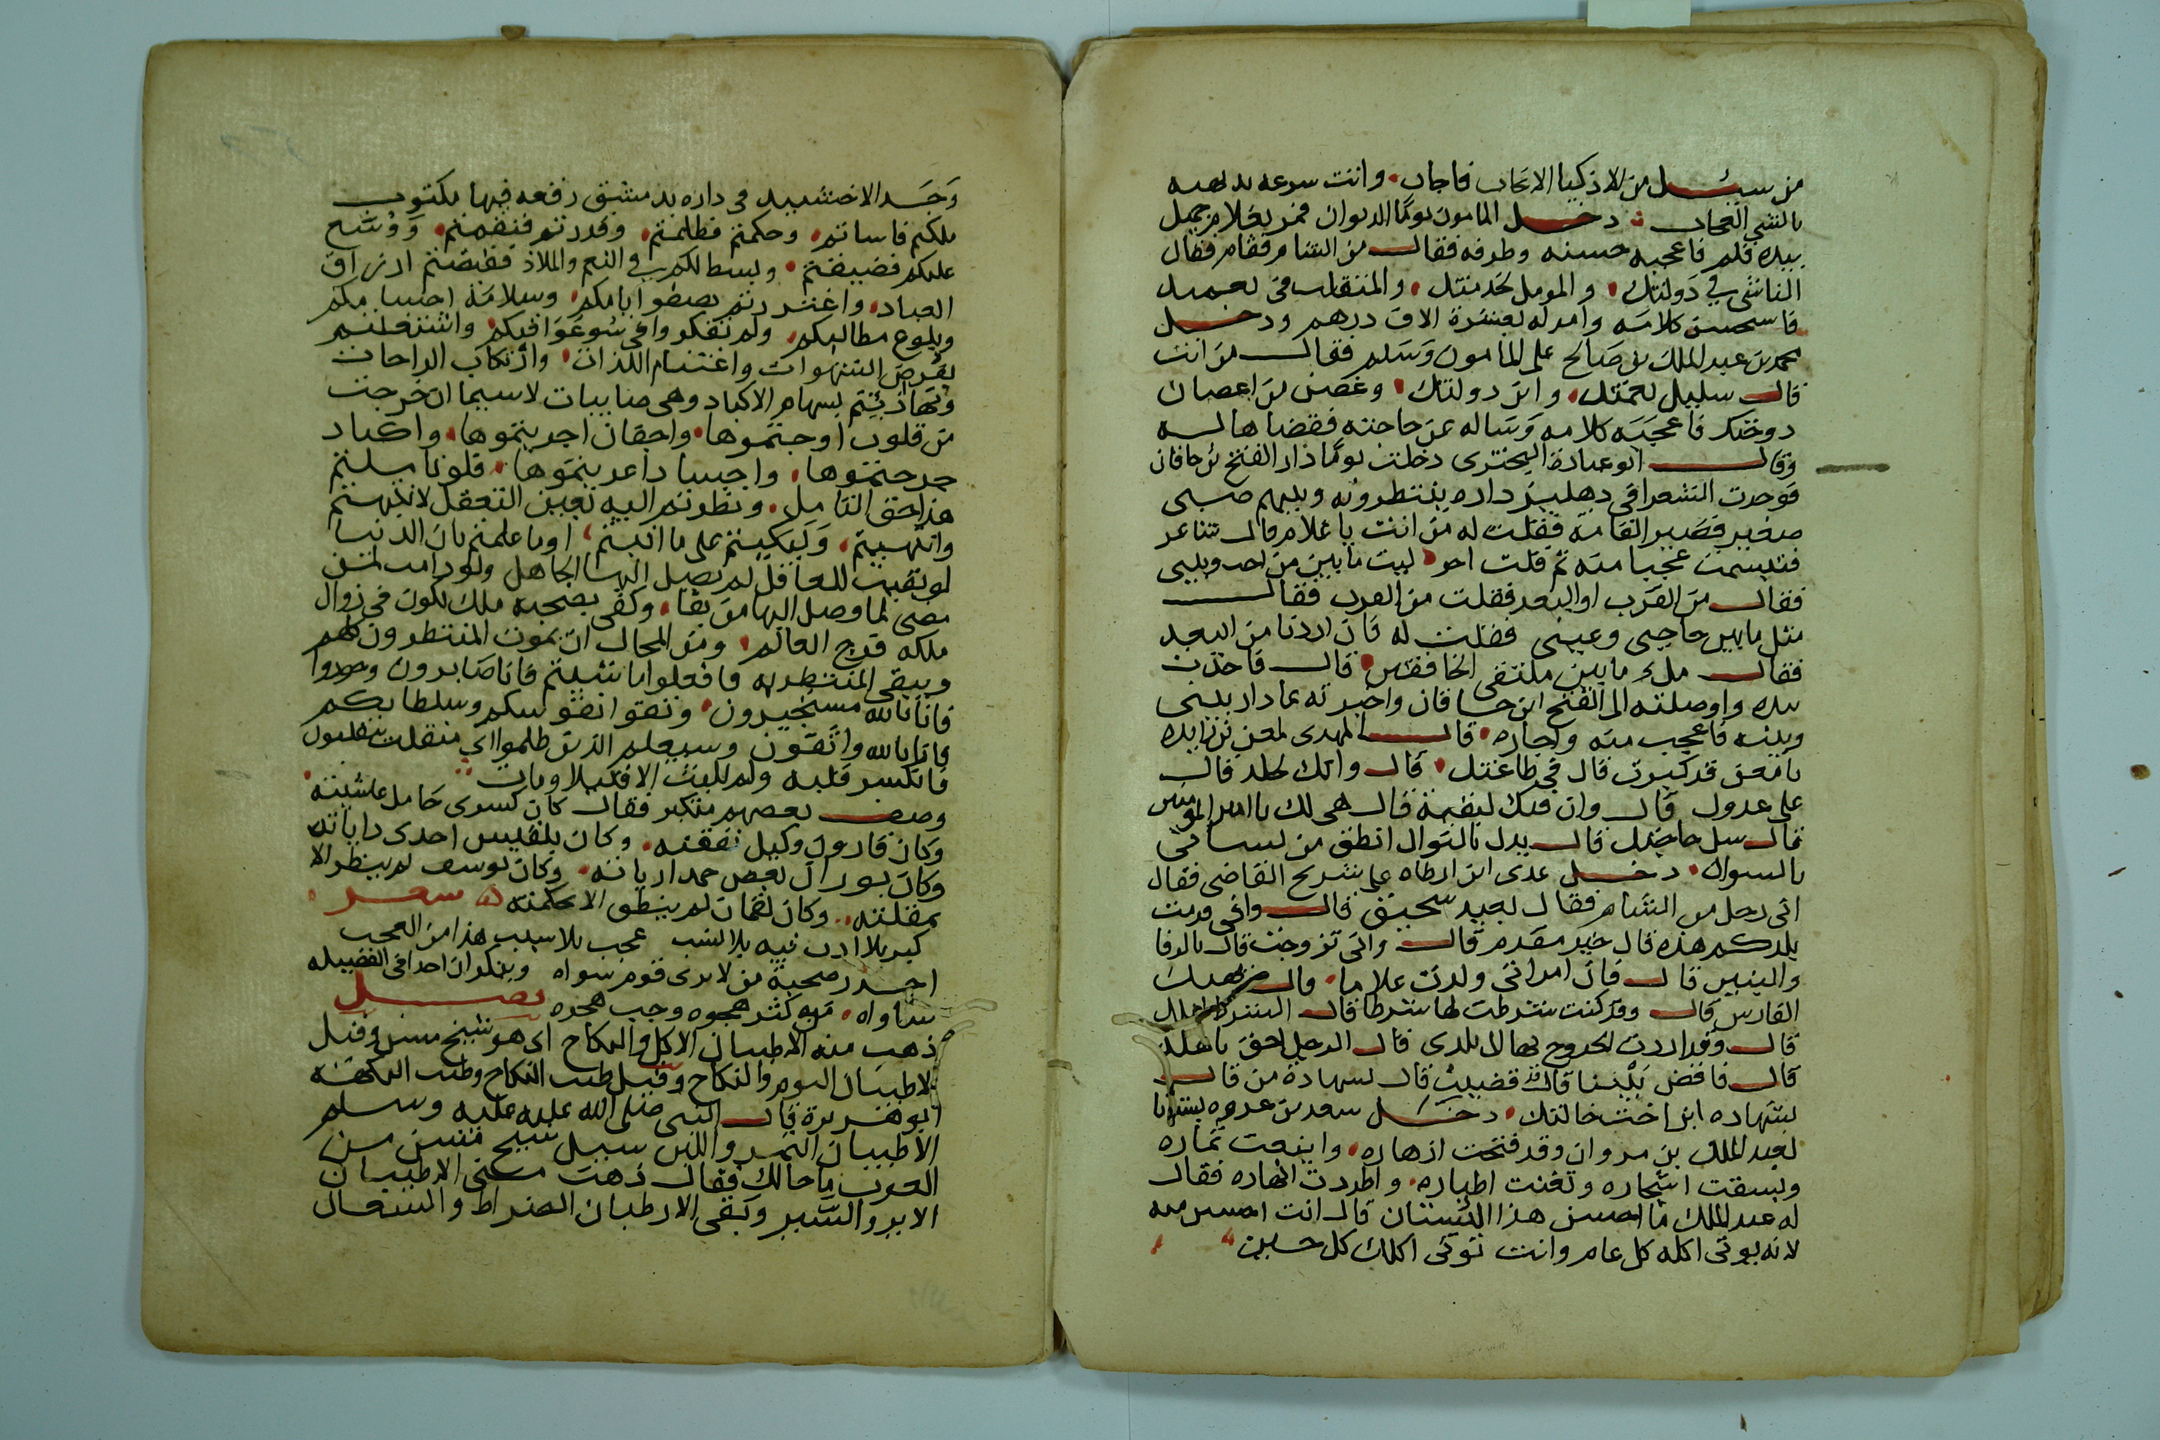 من سئل من الاذكيا الانجاب فاجاب وانت سرعه بديهيه
بالشي العجاب دخل المامون يوما الديوان فمر بغلام جميل
بيده قلم فاعجبه حسنه وطرفه فقال من الشام فقام فقال
الناشي في دولتك والمومل لخدمتك والمتقلب في نعمتك
فاستحسن كلامه وامر له بعشرة الاف درهم ودخل
محمد بن عبد الملك بن صالح على المامون وسلم فقال من انت
قال سليل نعمتك وابن دولتك وغصن من اغصان
دوحتك فاعجبه كلامه وساله عن حاجته فقضاها له
وقال ابو عبادة البحتري دخلت يوما دار الفتح بن خاقان
فوجدت الشعرا في دهليز داره ينتظرونه وبينهم صبي
صغير قصير القامه فقلت له من انت يا غلام قال شاعر
فتبسمت عجبا منه ثم قلت اجز ليت ما بين من احب وبيني
فقال من القرب او البعد فقلت من القرب فقال
مثل ما بين حاجبي وعيني فقلت له فان اردنا من البعد
فقال ملء ما بين ملتقى الخافقين قال فاخذت
بيده واوصلته الى الفتح ابن خاقان واخبرته بما دار بيني
وبينه فاعجب منه واجازه قال المهدي لمعن بن زايده
يا معن قد كبرت قال في طاعتك قال وانك لجلد قال
على عدوك قال وان فيك لبقية قال هي لك يا امير المومنين
قال سل حاجتك قال يدك بالنوال انطق من لساني
بالسوال دخل عدي ابن ارطاه على شريح القاضي فقال
اني رجل من الشام فقال بعيد سحيق قال واني قدمت
بلدكم هذه قال خير مقدم قال واني تزوجت قال بالرفا
والبنين قال فان امراتي ولدت غلاما قال ليهنك
الفارس قال وقد كنت شرطت لها شرطا قال الشرط املك
قال وقد اردت الخروج بها الى بلدي قال الرجل احق باهله
قال فاقض بيننا قال قد قضيت قال بشهادة من قال
بشهاده ابن اخت خالتك دخل سعد بن عروه بستانا
لعبد الملك بن مروان وقد فتحت ازهاره واينعت ثماره
وبسقت اشجاره وتغنت اطياره واطردت انهاره فقال
له عبد الملك ما احسن هذا البستان قال انت احسن منه
لانه يوتي اكله كل عام وانت توتي اكلك كل حين
وجد الاخشيد في داره بدمشق رقعه فيها مكتوب
ملكتم فاساتم وحكمتم فظلمتم وقدرتم فنقمتم ووسع
عليكم فضيقتم وبسط لكم في النعم والملاذ فقبضتم ارزاق
العباد واغتررتم بصفو ايامكم وسلامة احبابكم
وبلوغ مطالبكم ولم تفكروا في سوء عواقبكم واشتغلتم
بفرص الشهوات واغتنام اللذات وارتكاب الراحات
وتهاونتم بسهام الاكباد وهي صايبات لاسيما ان خرجت
من قلوب اوجعتموها واجفان اجريتموها واكباد
جرحتموها واجساد اعريتموها فلو تاملتم
هذا حق التامل ونظرتم اليه بعين التعقل لانتبهتم
وانتهيتم ولبكيتم على ما اتيتم او ما علمتم بان الدنيا
لو بقيت للعاقل لم يصل اليها الجاهل ولو دامت لمن
مضى لما وصل اليها من بقا وكفى بصحبة ملك يكون في زوال
ملكه فرج العالم ومن المحال ان يموت المنتظرون كلهم
ويبقى المنتظر به فافعلوا ما شيتم فانا صابرون وجوروا
فانا بالله مستجيرون وثقوا بنفوسكم وسلطانكم
فانا بالله واثقون وسيعلم الذين ظلموا اي منقلب ينقلبون
فانكسر قلبه ولم يلبث الا قليلا ومات
وصف بعضهم متكبر فقال كان كسرى حامل غاشيته
وكان قارون وكيل نفقته وكان بلقيس احدى داياته
وكان بوران بعض وكان يوسف لم ينظر الا
بمقلته وكان لقمان لم ينطق الا بحكمته شعر
كبر بلا ادب تيه بلا نشب عجب بلا سبب هذا من العجب
احذر صحبة من لا يرى قوم سواه وينكر ان احدا في الفضيله
ساواه من كثر هجوه وجب هجره فصل
ذهب منه الاطيبان الاكل والنكاح اي هو شيخ مسن وقيل
الاطيبان النوم والنكاح وقيل طيب النكاح وطيب النكهه
ابو هريرة قال النبي صلى الله عليه عليه وسلم
الاطيبان التمر واللبن سيل شيخ مسن من
العرب ما حالك فقال ذهبت مني الاطيبان
الاير والسير وبقى الارطبان الضراط والسعال